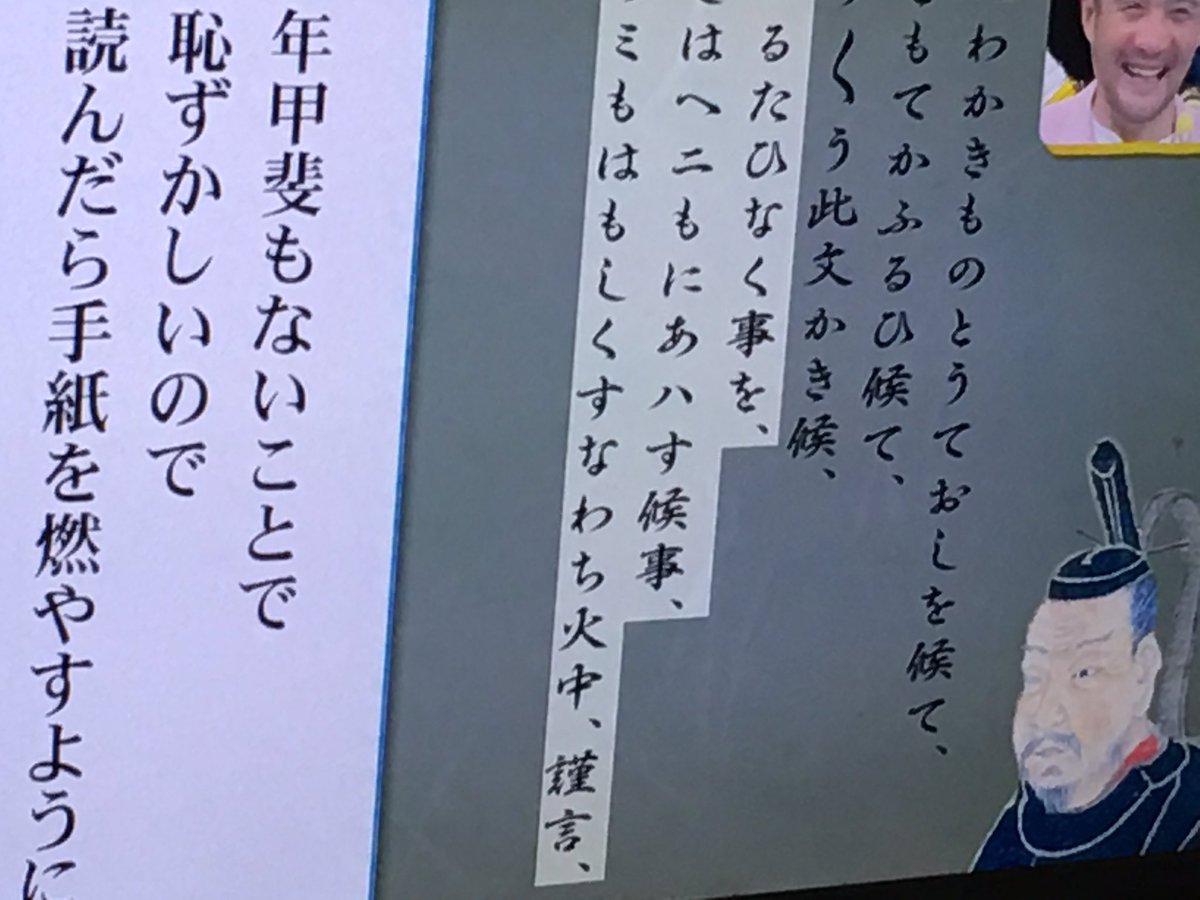 わかきものとうておしを候て、
もてかふるひ候て、
くう此文かき候、
るたひなく事を、
はへニもにあハす候事、
ミもはもしくすなわち火中、謹言、
年甲斐もないことで
恥ずかしいので
読んだら手紙を燃やすように